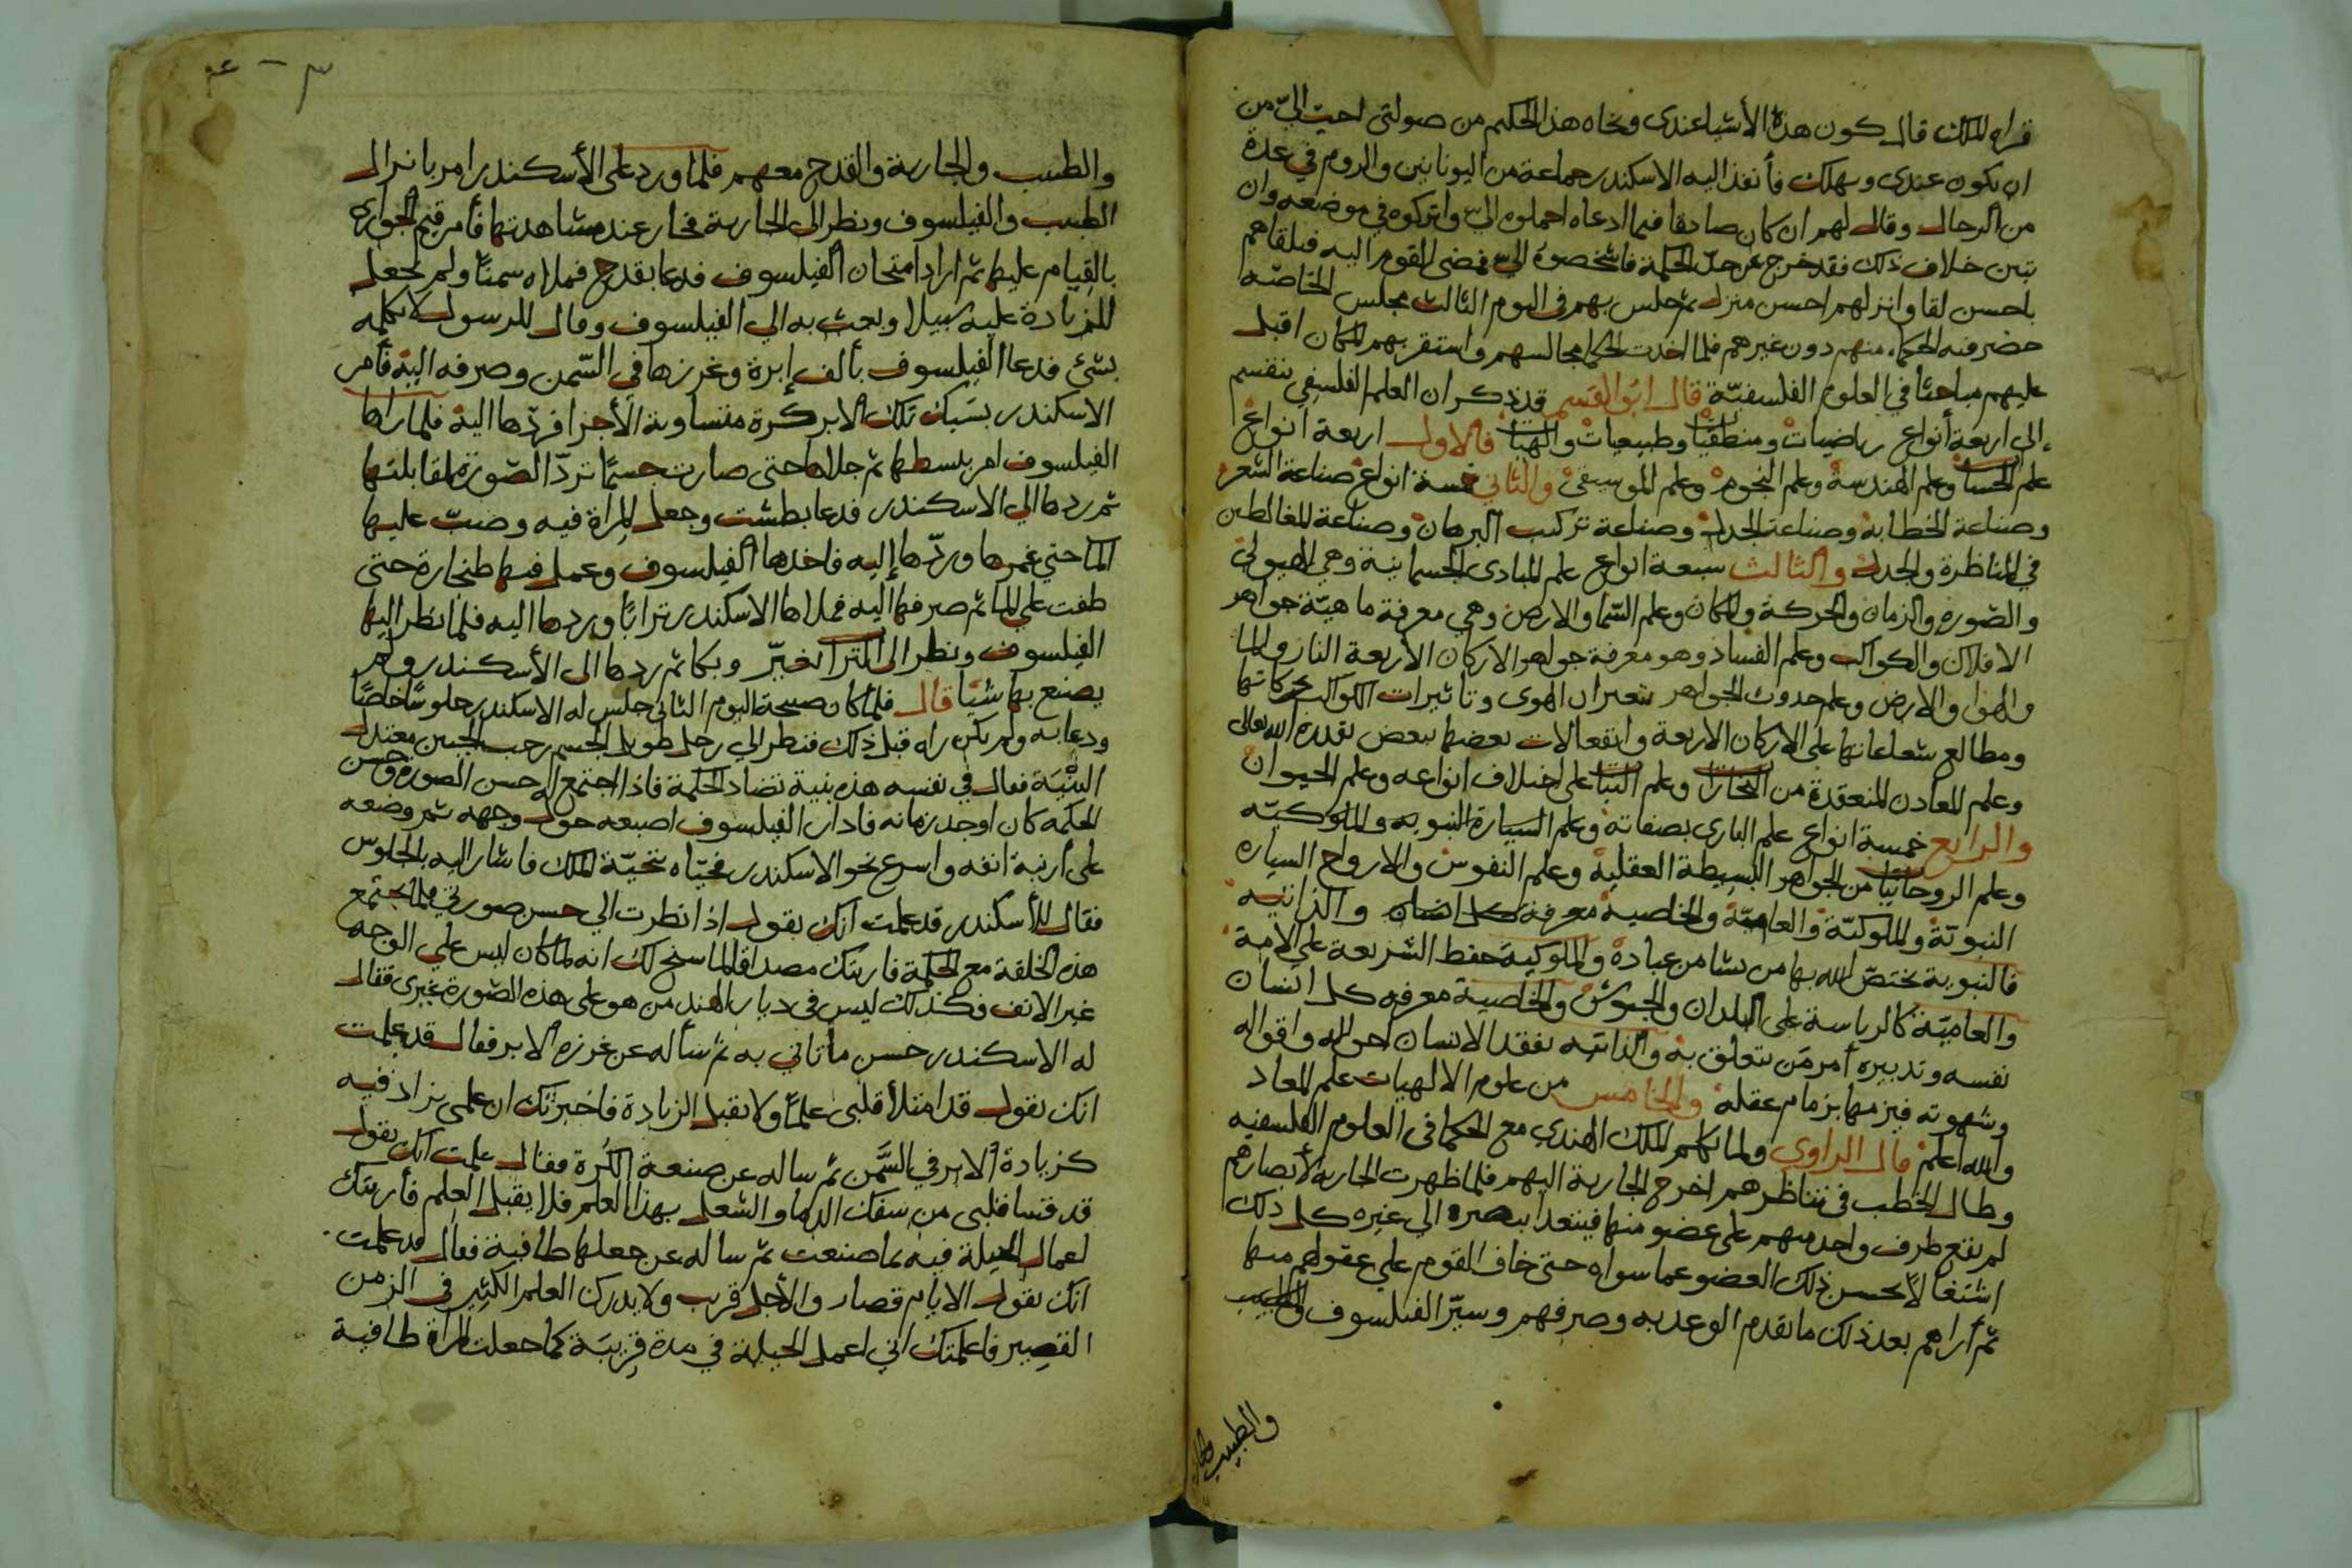 قراه الملك قال كون هذه الأشيا عندى ونجاه هذا الحكيم من صولتى احب الىّ من
ان يكون عندى ويهلك فأنفذ اليه الاسكندر جماعة من اليونانين والروم في عدة
من الرجال وقال لهم ان كان صادقا فيما ادعاه احملوه الىّ واتركوه في موضعه وان
تبين خلاف ذلك فقد خرج عن حدّ الحكمة فاشخصوه الىّ فمضى القوم اليه فتلقاهم
باحسن لقا وانزلهم احسن منزل ثم جلس بهم في اليوم الثالث مجلس الخاصّه
حضر فيه الحكماء منهم دون غيرهم فلما اخذت الحكما مجالسهم واستقر بهم المكان اقبل
عليهم مباحثا في العلوم الفلسفيّة قال ابو القسم قد ذكر ان العلم الفلسفي ينقسم
إلى اربعة أنواع رياضيات ومنطقيات وطبيعيات والهيات فالاول اربعة انواع
علم الحساب وعلم الهندسة وعلم النجوم وعلم الموسيقى والثاني خمسة انواع صناعة الشعر
وصناعة الخطابة وصناعة الجدل وصناعة تركيب البرهان وصناعة المغالطين
في المناظرة والجدل والثالث سبعة انواع علم المبادى الجسمانية وهي الهيولى
والصّوره والزمان والحركة والمكان وعلم السّما والارض وهي معرفة ماهيّة جواهر
الافلاك والكواكب وعلم الفساد وهو معرفة جواهر الاركان الأربعة النار والما
والهوا والارض وعلم حدوث الجواهر بتغيرات الهوى وتاثيرات الكواكب بحركاتها
ومطالع شعاعاتها على الاركان الاربعة وانفعالات بعضها ببعض بقدرة الله تعالى
وعلم المعادن المنعقدة من البخارات وعلم النبات على اختلاف انواعه وعلم الحيوان
والرابع خمسة انواع علم البارى بصفاته وعلم السيارة النبويه والملوكيّه
وعلم الروحانيات من الجواهر البسيطة العقلية وعلم النفوس والارواح السياره
النبويّة والملوكيّة والعاميّة والخاصية معرفة كل انسان والذاتيه
فالنبوية يختصّ الله بها من يشا من عباده والملوكية حفظ الشريعة على الامة
والعاميّة كالرياسة على البلدان والجيوش والخاصية معرفه كل انسان
نفسه وتدبيره أمر من يتعلق به والذاتيه تفقد الانسان احواله واقواله
وشهوته فيزمها بزمام عقله والخامس من علوم الالهيات علم المعاد
والله اعلم قال الراوى ولما تكلم الملك الهندى مع الحكما في العلوم الفلسفيه
وطال الخطب في تناظرهم اخرج الجارية اليهم فلما ظهرت الجاريه لأبصارهم
لم يقع طرف واحد منهم على عضو منها فيتعدا ببصره الى غيره كل ذلك
اشتغالاً بحسن ذلك العضو عما سواه حتى خاف القوم على عقولهم منها
ثم أراهم بعد ذلك ما تقدم الوعد به وصرفهم وسيّر الفيلسوف والطبيب
والطبيب
والطبيب والجارية والقدح معهم فلما ورد على الأسكندر امر بانزال
الطبيب والفيلسوف ونظر الى الجارية فحار عند مشاهدتها فأمر قيم الجوارى
بالقيام عليها ثم اراد امتحان الفيلسوف فدعا بقدح فملاه سمنًا ولم يجعل
للزيادة عليه سبيلا وبعث به الي الفيلسوف وقال للرسول لا تكلمه
بشئ فدعا الفيلسوف بألف إبرة وغرزها في السّمن وصرفه اليه فأمر
الاسكندر بسَبك تلك الابر كرة متساوية الأجزا فردّها اليه فلما راها
الفيلسوف امر ببسطها ثم جلاها حتى صارت جسمًا تردّ الصّورة لمقابلتها
ثم ردها الي الاسكندر فدعا بطشت وجعل المرآة فيه وصبّ عليها
الما حتى غمرها وردّها إليه فاخدها الفيلسوف وعمل منها طنجارة حتى
طفت على الما ثم صرفها اليه فملاها الاسكندر ترابًا وردها اليه فلما نظر اليها
الفيلسوف ونظر الى التراب تغيّر وبكا ثم ردها الى الأسكندر ولم
يصنع بها شيا قال فلما كان صبيحة اليوم الثاني جلس له الاسكندر جلوسًا خاصًا
ودعا به ولم يكن راه قبل ذلك فنظر الي رجل طويل الجسم رحب الجبين معتدل
البنْيَة فقال في نفسه هذه بنية تضاد الحكمة فاذا اجتمع له حسن الصورة وحسن
الحكمه كان اوحد زمانه فادار الفيلسوف اصبعه حول وجهه ثم وضعه
على أرنبة انفه واسرع نحو الاسكندر فحيّاه تحيّة الملك فاشار اليه بالجلوس
فقال للأسكندر قد علمت انك تقول اذا نظرت الي حسن صورتي قلما تجتمع
هذه الخلقة مع الحكمة فاريتك مصداقا لما سنح لك انه لما كان ليس على الوجه
غير الانف فكذلك ليس في ديار الهند من هو على هذه الصّورة غيرى فقال
له الاسكندر حسن ما تاتي به ثم سأله عن غرزه الابر فقال قد علمت
انك تقول قد امتلأ قلبى علمًا ولا يقبل الزيادة فاخبرتك ان علمى يزاد فيه
كزيادة الابر في السَّمن ثم ساله عن صنعة الكُرة فقال علمت انك تقول
قد قسا قلبى من سفك الدما والشغل بهذا العلم فلا يقبل العِلم فأريتك
اعمال الحيلة فيه بما صنعت ثم ساله عن جعلها طافية فقال قد علمت
انك تقول الايام قصار والأجل قريب ولا يدرك العلم الكثير في الزمن
القصير فاعلمتك انى اعمل الحيلة في مدة قريبَة كما جعلت المرآة طافية